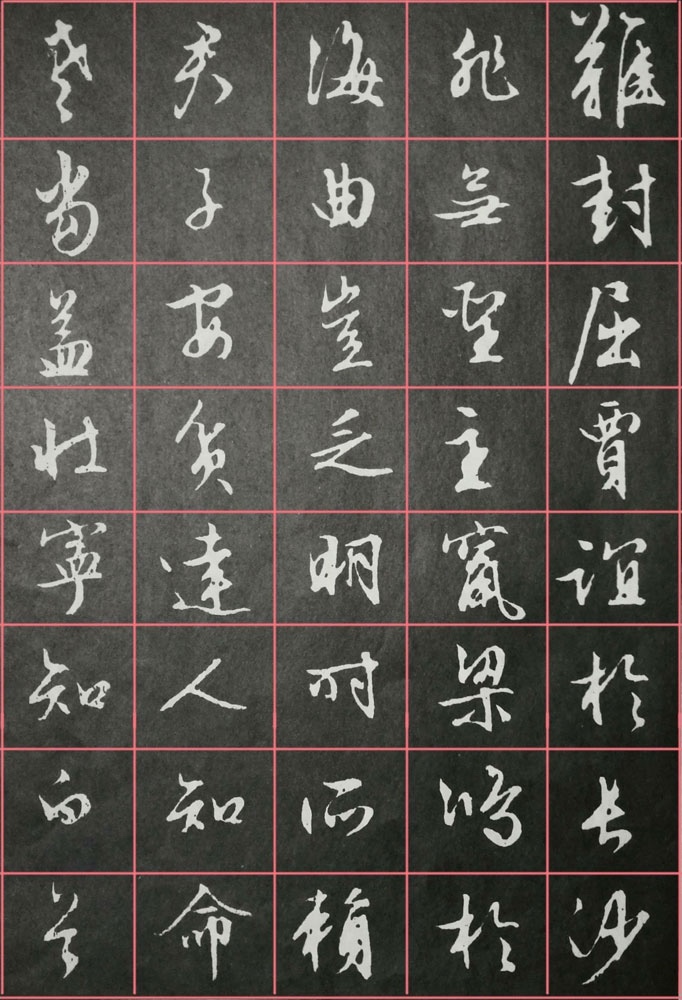 難封屈賈誼於長沙
非無聖主竄梁鴻於
海曲豈乏明時所賴
君子安貧達人知命
老當益壯寧知白首